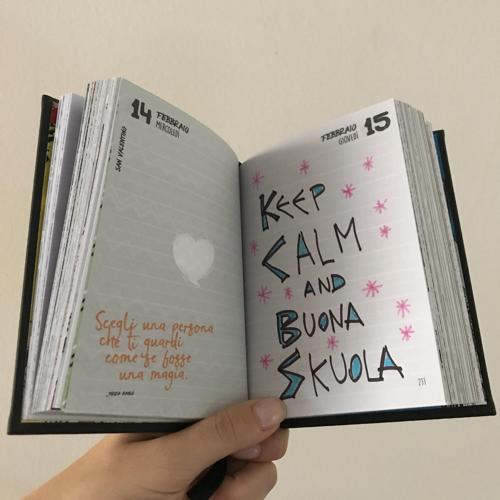 14 FEBBRAIO
MERCOLEDÌ
SAN VALENTINO
Scegli una persona
che ti guardi
come se fosse
una magia.
FEBBRAIO 15
GIOVEDÌ
KEEP
CALM
AND
BUONA
SKUOLA